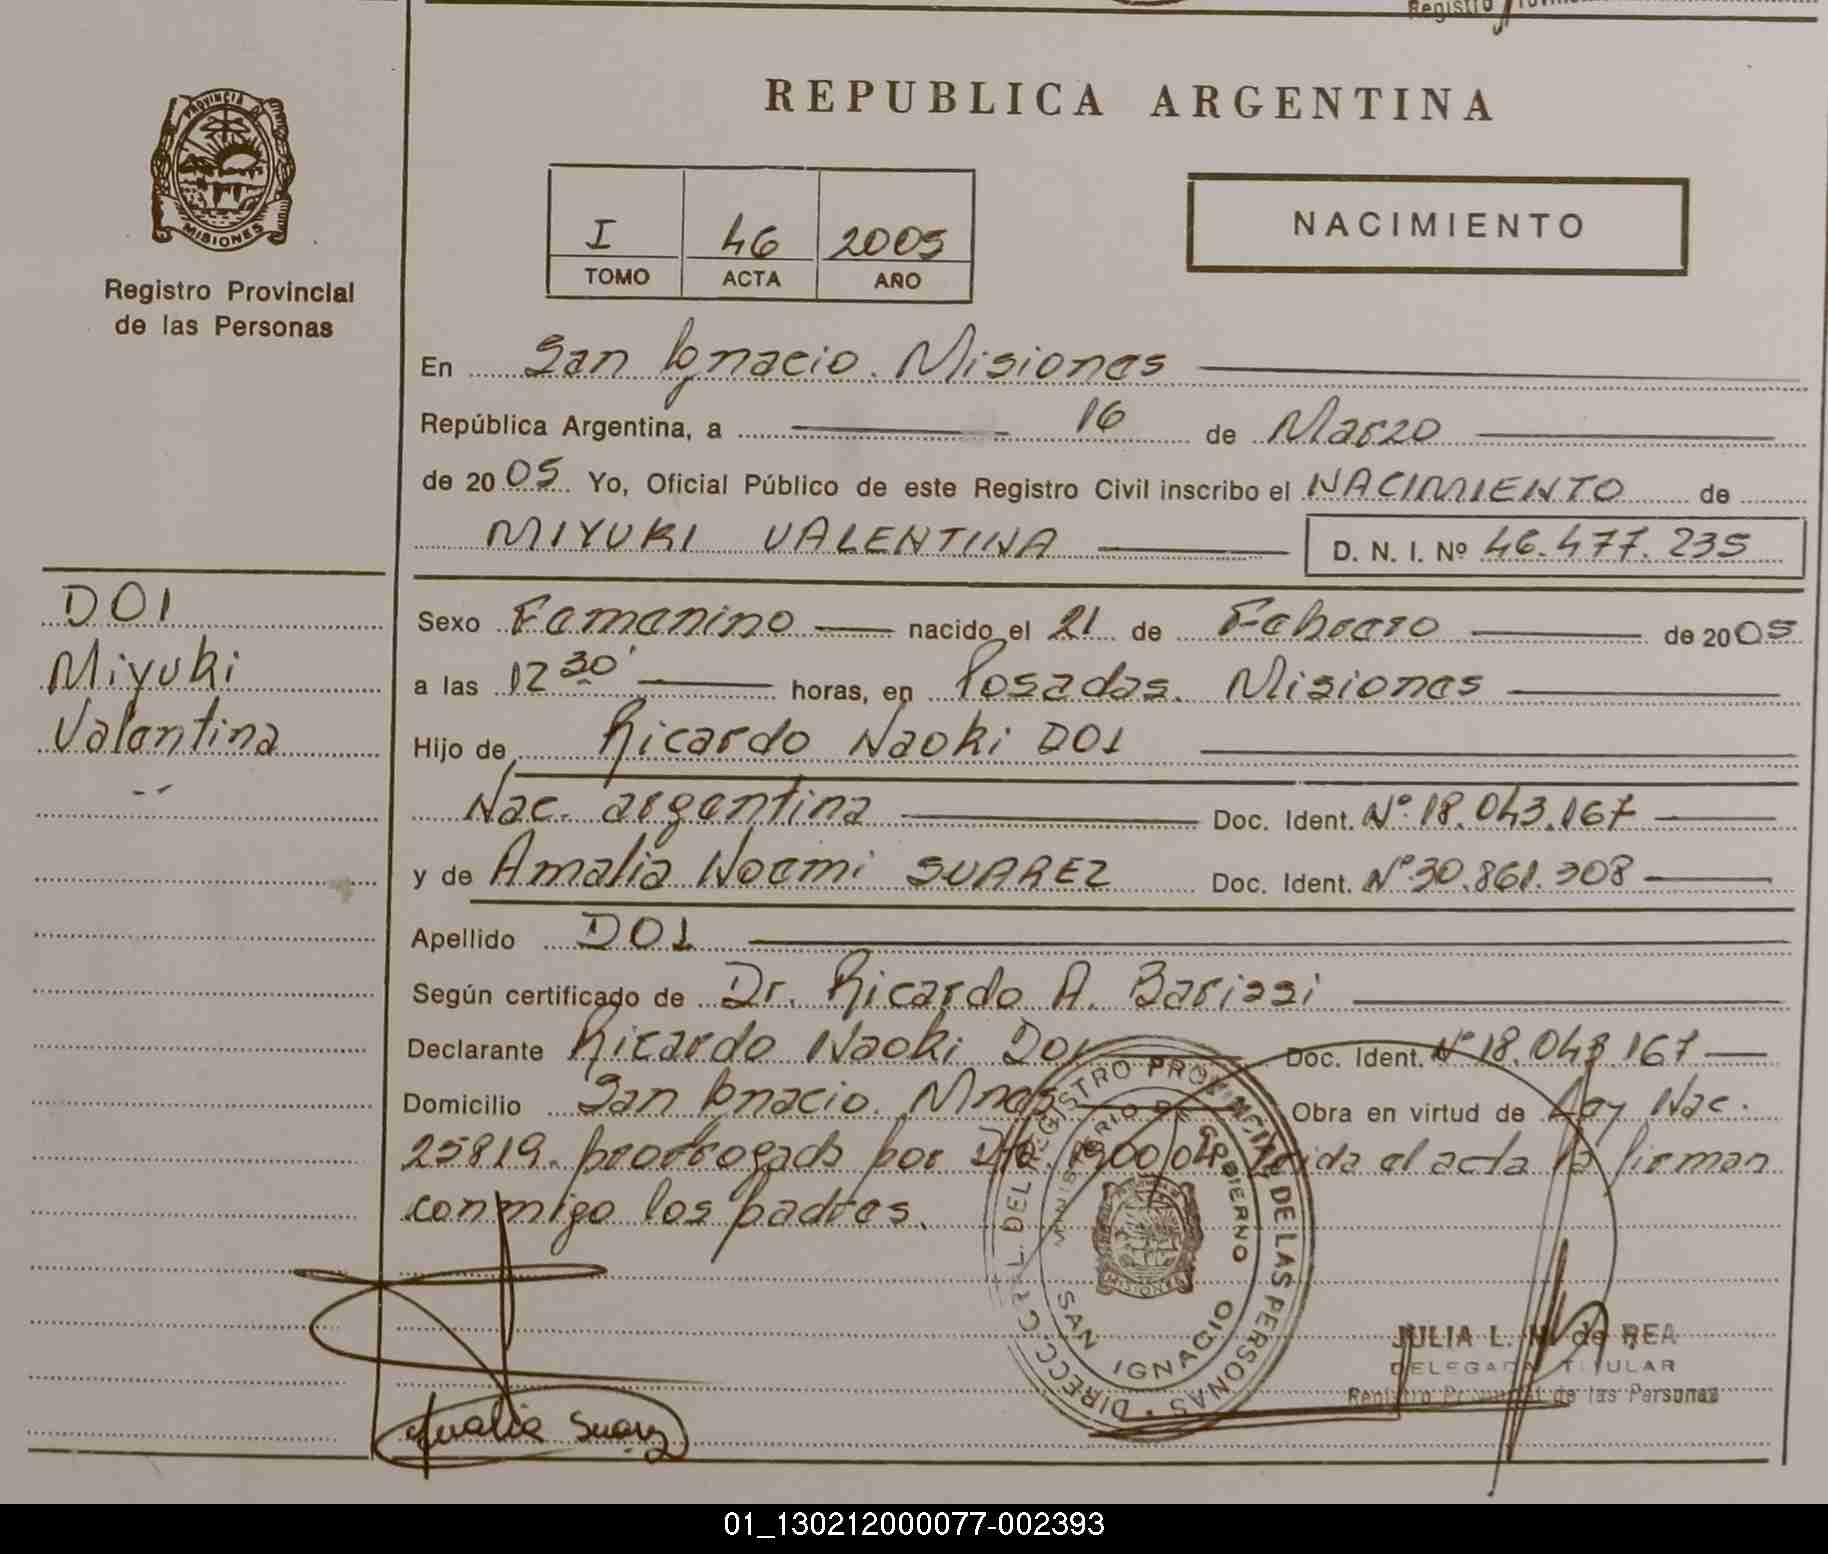 REPUBLICA ARGENTINA
PROVINCIA DE
MISIONES
Registro Provincial
de las Personas
I 46 2005
TOMO ACTA AÑO
NACIMIENTO
En San Ignacio. Misiones
República Argentina, a 16 de Marzo
de 2005 Yo, Oficial Público de este Registro Civil inscribo el NACIMIENTO de
MIYUKI VALENTINA D. N. I. Nº 46.477.235
DOI
Miyuki
Valentina
Sexo Femenino nacido el 21 de Febrero de 2005
a las 12 30' horas, en Posadas. Misiones
Hijo de Ricardo Naoki DOI
Nac. argentina Doc. Ident. Nº 18.043.167
y de Amalia Noemi SUAREZ Doc. Ident. Nº 30.861.308
Apellido DOI
Según certificado de Dr. Ricardo A.
Declarante Ricardo Naoki Doi Doc. Ident. Nº 18.043.167
Domicilio San Ignacio. Mnes Obra en virtud de Ley Nac.
25819. prorrogado por Dto. 1900/04. Leida el acta la firman
conmigo los padres.
DIRECC. GRAL. DEL REGISTRO PROVINCIAL DE LAS PERSONAS
MINISTERIO DE GOBIERNO
MISIONES
SAN IGNACIO
Amalia Suarez
JULIA L. de REA
DELEGADA TITULAR
Registro Provincial de las Personas
01_130212000077-002393